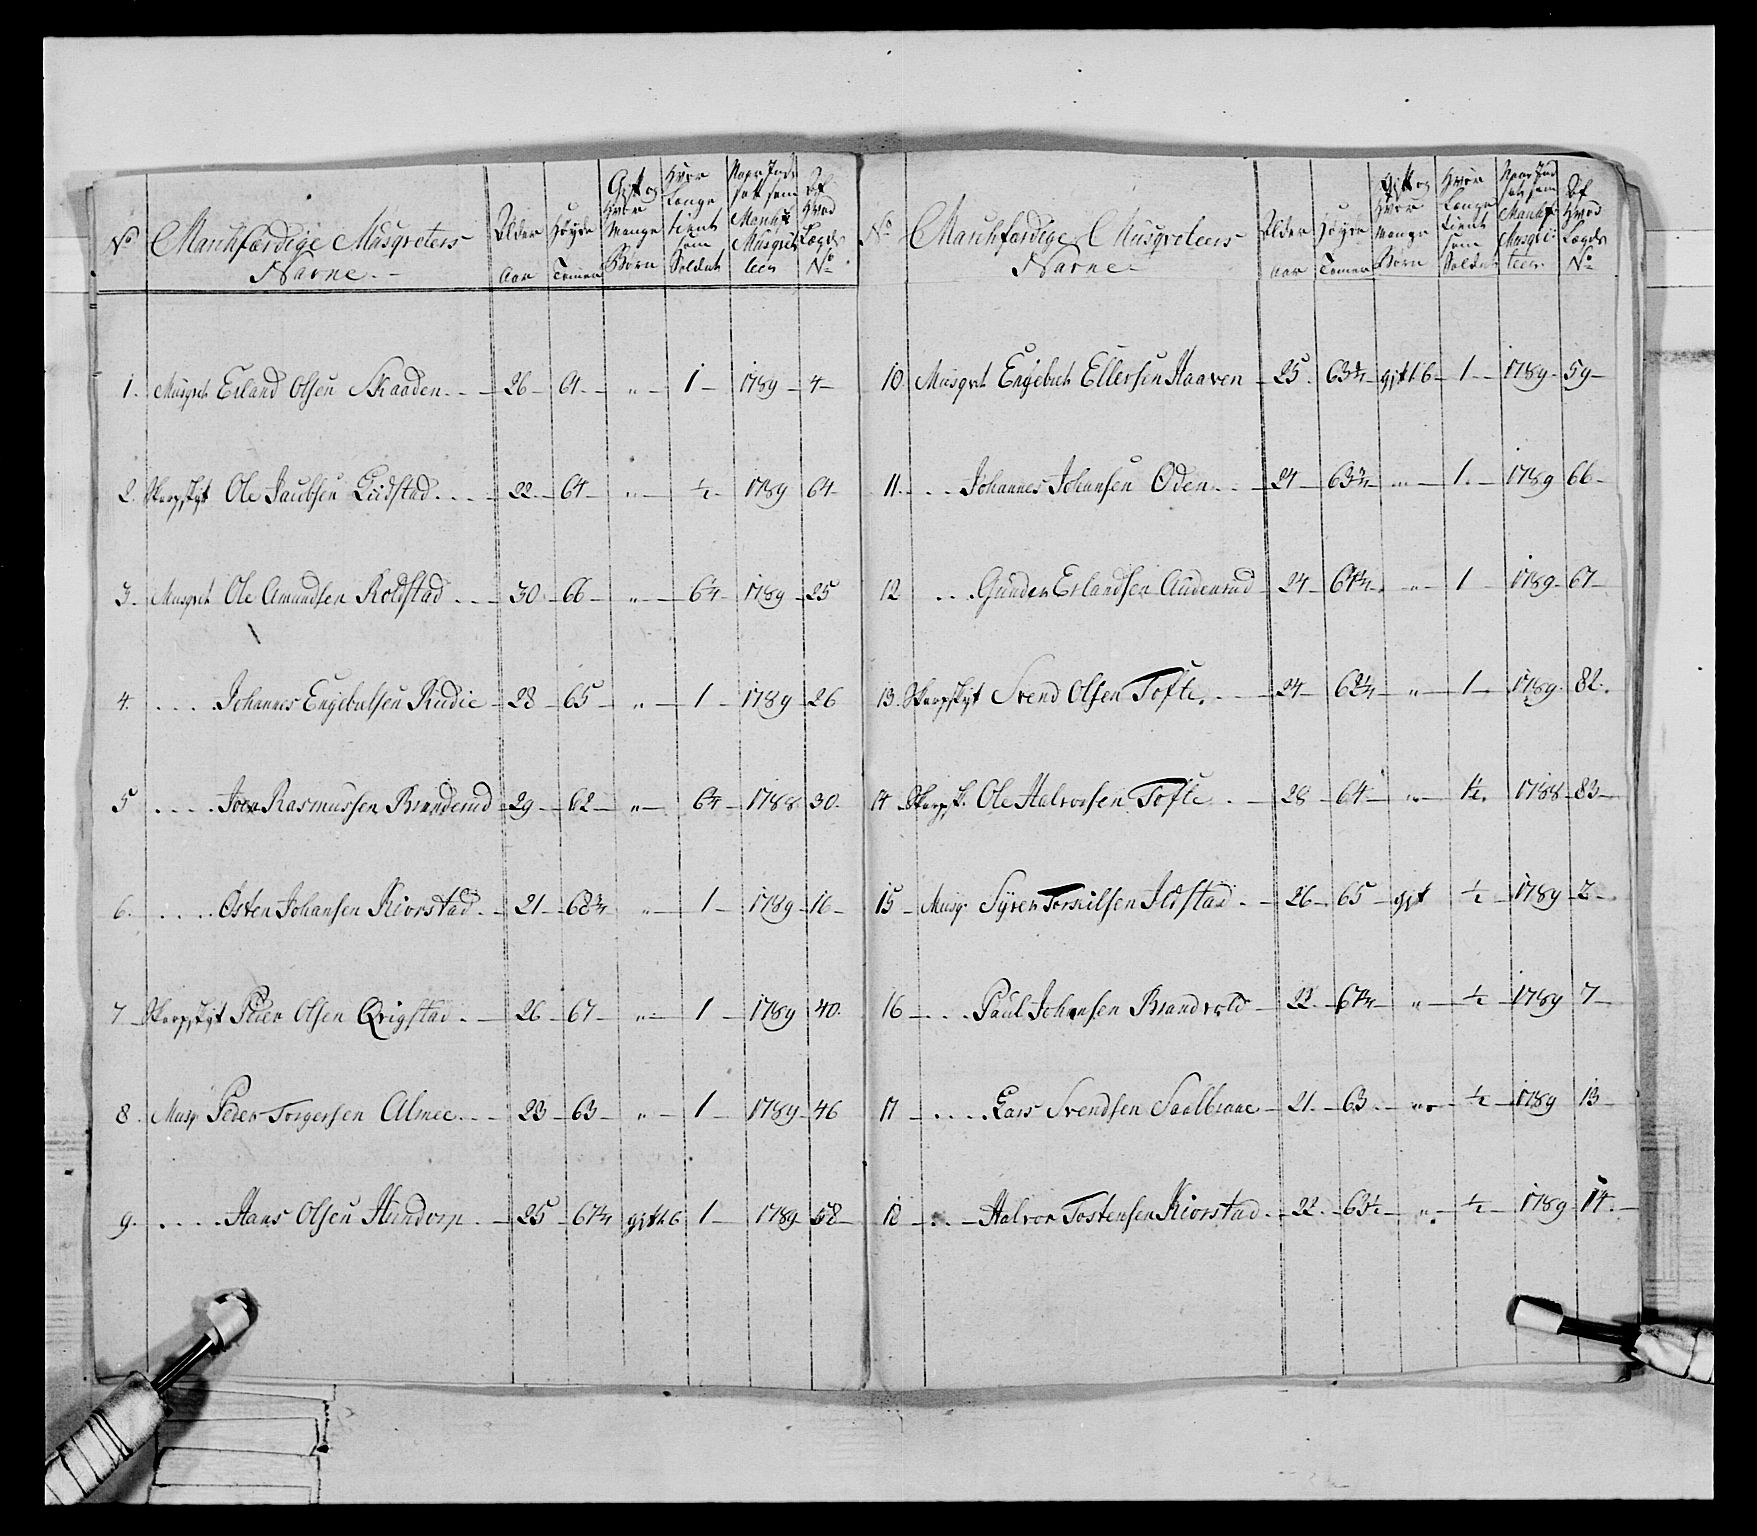 No Marchfærdige Musqveters Navne. Alder Aar Høyde Tomer Gift og Hvor Mange Børn Hvor Længe tient som Soldat Naar Inds sat som March f Musqvet teer Af Hvad Lægds No
1. Musqvet Erland Olsen Skaaden. 26 61 " 1 1789 4
2. Skarpskyt Ole Jacobsen Liidstad 22 64 " ½ 1789 64
3. Musqvet Ole Amundsen Roldstad 30 66 " 6¼ 1789 25
4. Johannes Engebretsen Rudie 28 65 " 1 1789 26
5 Joen Rasmussen Branderud 29 62 " 6¼ 1788 30
6. Østen Johansen Kiorstad 21 62¾ " 1 1789 16
7 Skarpskyt Peder Olsen Qvigstad 26 67 " 1 1789 40.
8. Musq Peder Torgersen Almee 23 63 " 1 1789 46
9. Hans Olsen Hundorp 25 67¼ gift 1 1789 58
No Marchfærdige Musqveteers Navne Alder Aar Høyde Tomer Gift og Hvor Mange Børn Hvor Længe tient som Soldat Naar Ind sat som March f Musqve teer. Af Hvad Lægds No
10 Musqvet Engebret Ellefsen Haaven 25. 63¼ gift 1 1789 59
11. Johannes Johansen Oden 24 63¾ " 1. 1789 66
12 Gunder Erlandsen Audensrud 24 64¼ " 1 1789 67
13. Skarpskyt Svend Olsen Tofte. 24 62¼ " 1 1789 82.
14 Skarp s. Ole Halvorsen Tofte 28 64 " 1½. 1788 83
15 Musq. Syver Torkilsen Ildstad 26 65 gift ½ 1789 2
16 Paul Johansen Brandvold 22. 67¼ " ½ 1789 7
17 Lars Svendsen Saalbraae 21. 63 " ½ 1789 13
18 Halvor Tostensen Kiorstad 22. 63½ " ½ 1789 14.